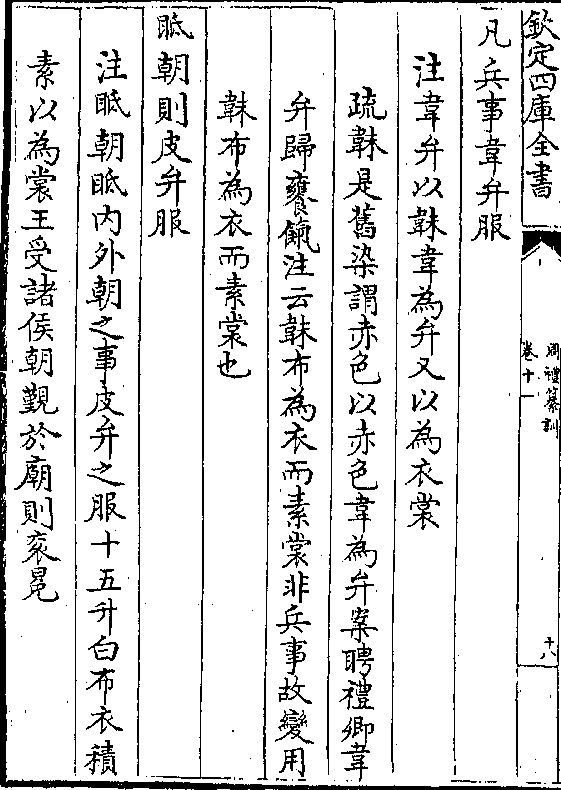 欽定四庫全書
周禮纂訓
卷十一
十八
凡兵事韋弁服
注韋弁以韎韋為弁又以為衣裳
疏韎是舊染謂赤色以赤色韋為弁案聘禮卿韋
弁歸饔餼注云韎布為衣而素裳非兵事故變用
韎布為衣而素裳也
眡朝則皮弁服
注眡朝眡内外朝之事皮弁之服十五升白布衣積
素以為裳王受諸侯朝覲於廟則衮冕